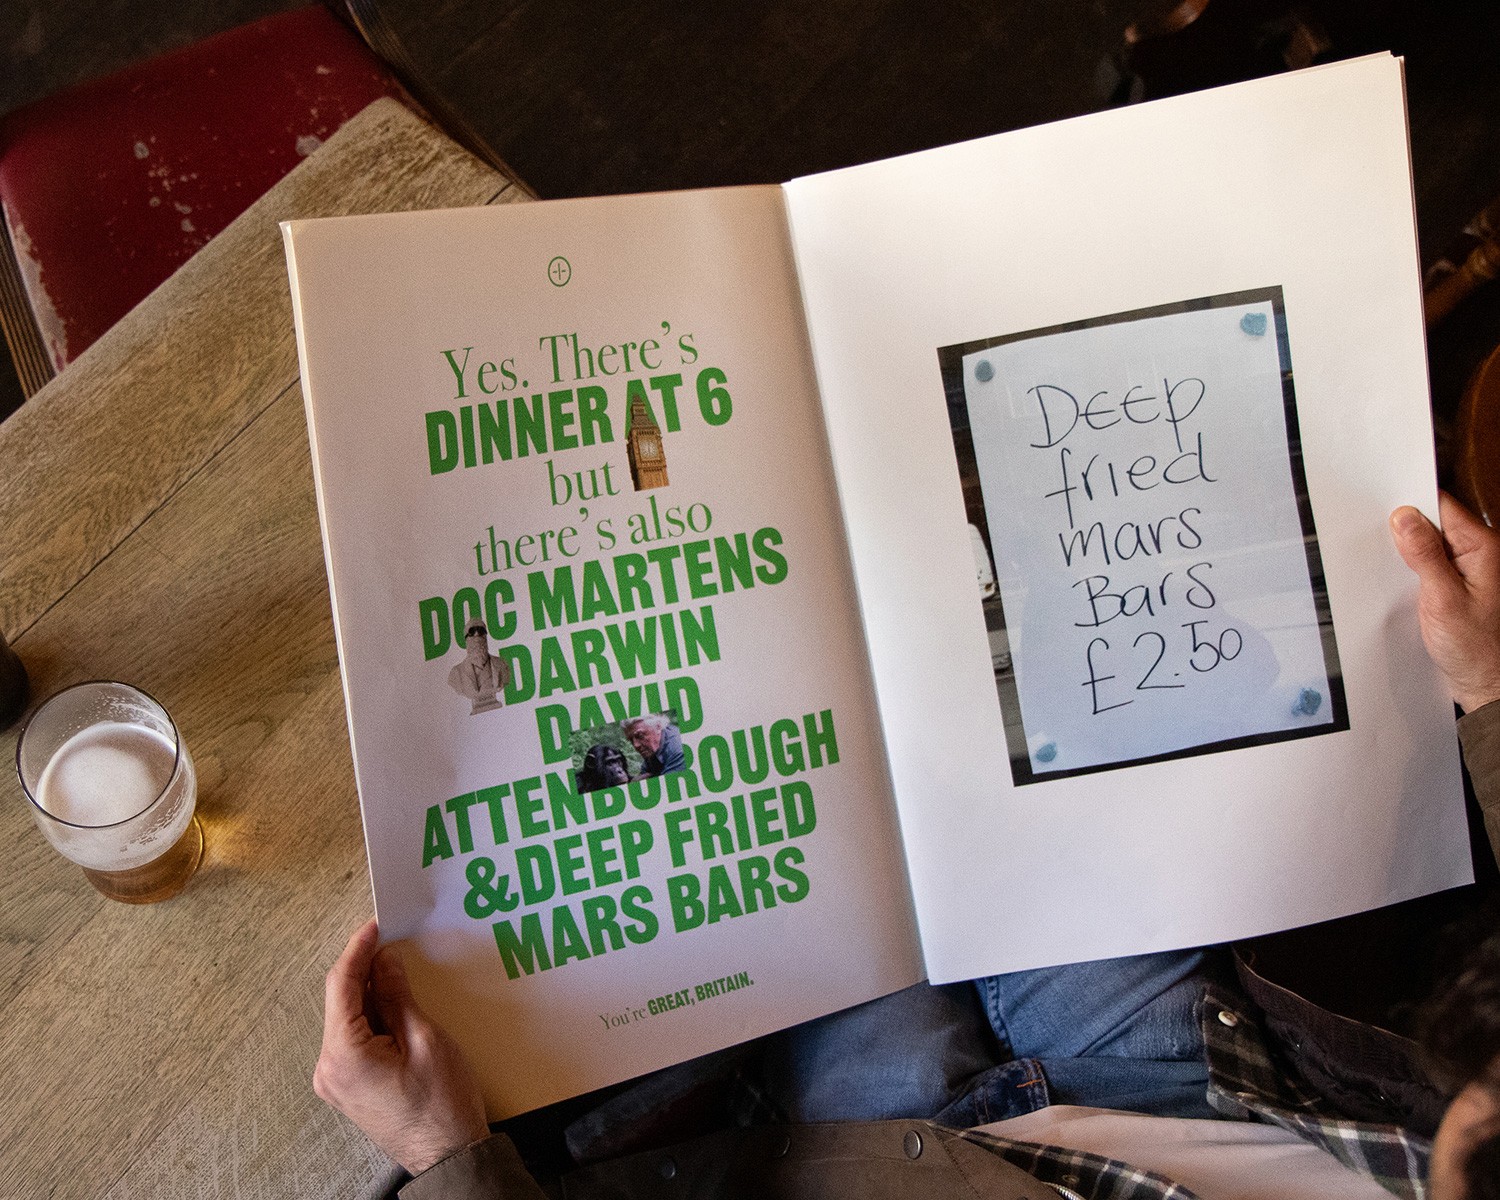 Yes. There's
DINNER AT 6
but
there's also
DOC MARTENS
DARWIN
DAVID
ATTENBOROUGH
& DEEP FRIED
MARS BARS
You're GREAT, BRITAIN.
DEEp
fried
mars
Bars
£2.50